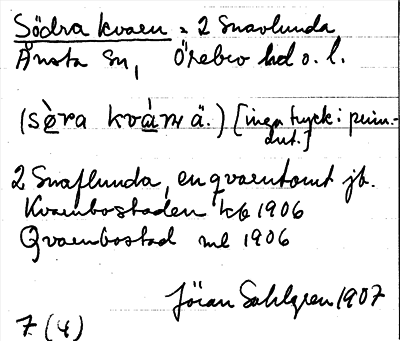 Södra kvaen = 2 Snavlunda
Ånsta sn, Örebro hd o. l.
(sè̱ra kvà̱rnä.) [inga tryck i prim-
dut.]
2 Snaflunda, en qvaentomt jb.
Kvaenbostaden kb 1906
Qvaenbostad ml 1906
Jöran Sahlgren 1907
7 (4)